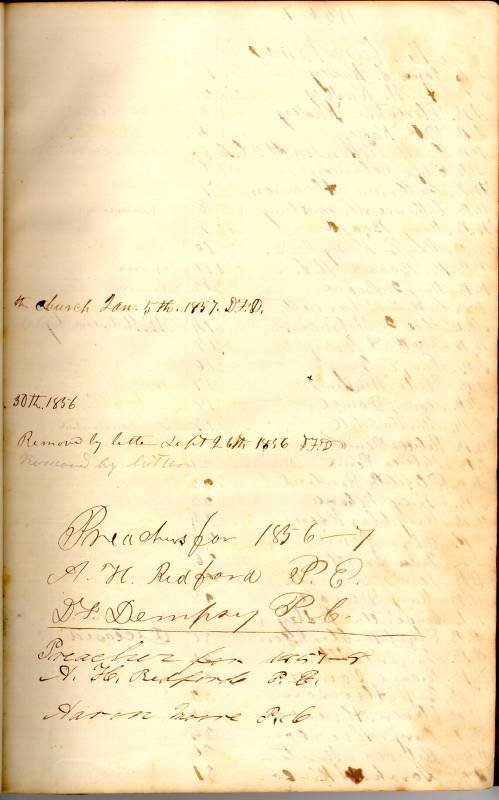 th church Jan. 5th. 1857. D.F.D.
30th. 1856
Removed by letter Sept 26th 1856 D.F.D
Removed by letter
Preachers for 1856-7
A. H. Redford P. E.
D.F. Dempsey P. C.
Preacher for 1857-8
A. H. Redford P. E.
Aaron Moore P. C